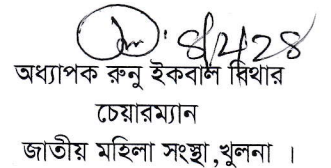 8/4/28
অধ্যাপক রুনু ইকবাল বিথার
চেয়ারম্যান
জাতীয় মহিলা সংস্থা,খুলনা ।